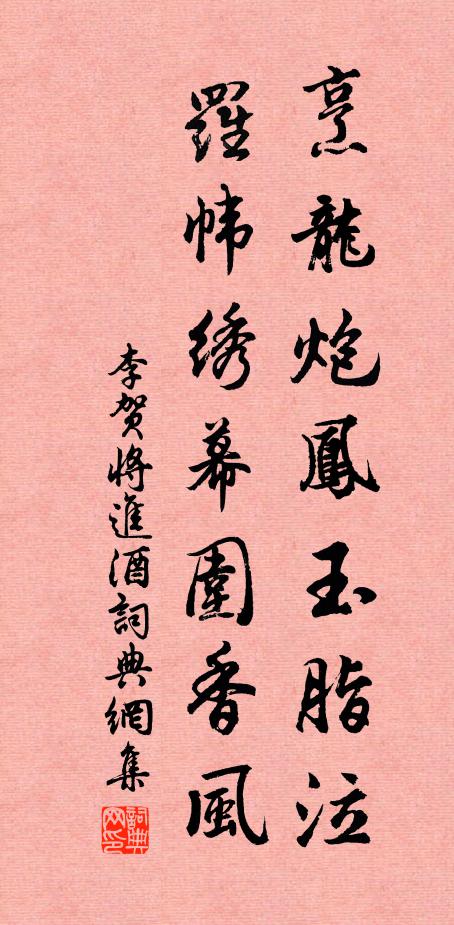 烹龍炮鳳玉脂泣
羅幃綉幕圍香風
李贺將進酒詞典網集
詞典网印